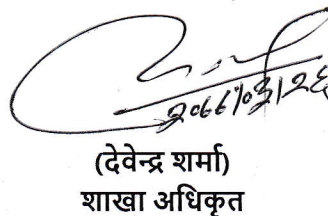 २०६६।०३।२६
(देवेन्द्र शर्मा)
शाखा अधिकृत